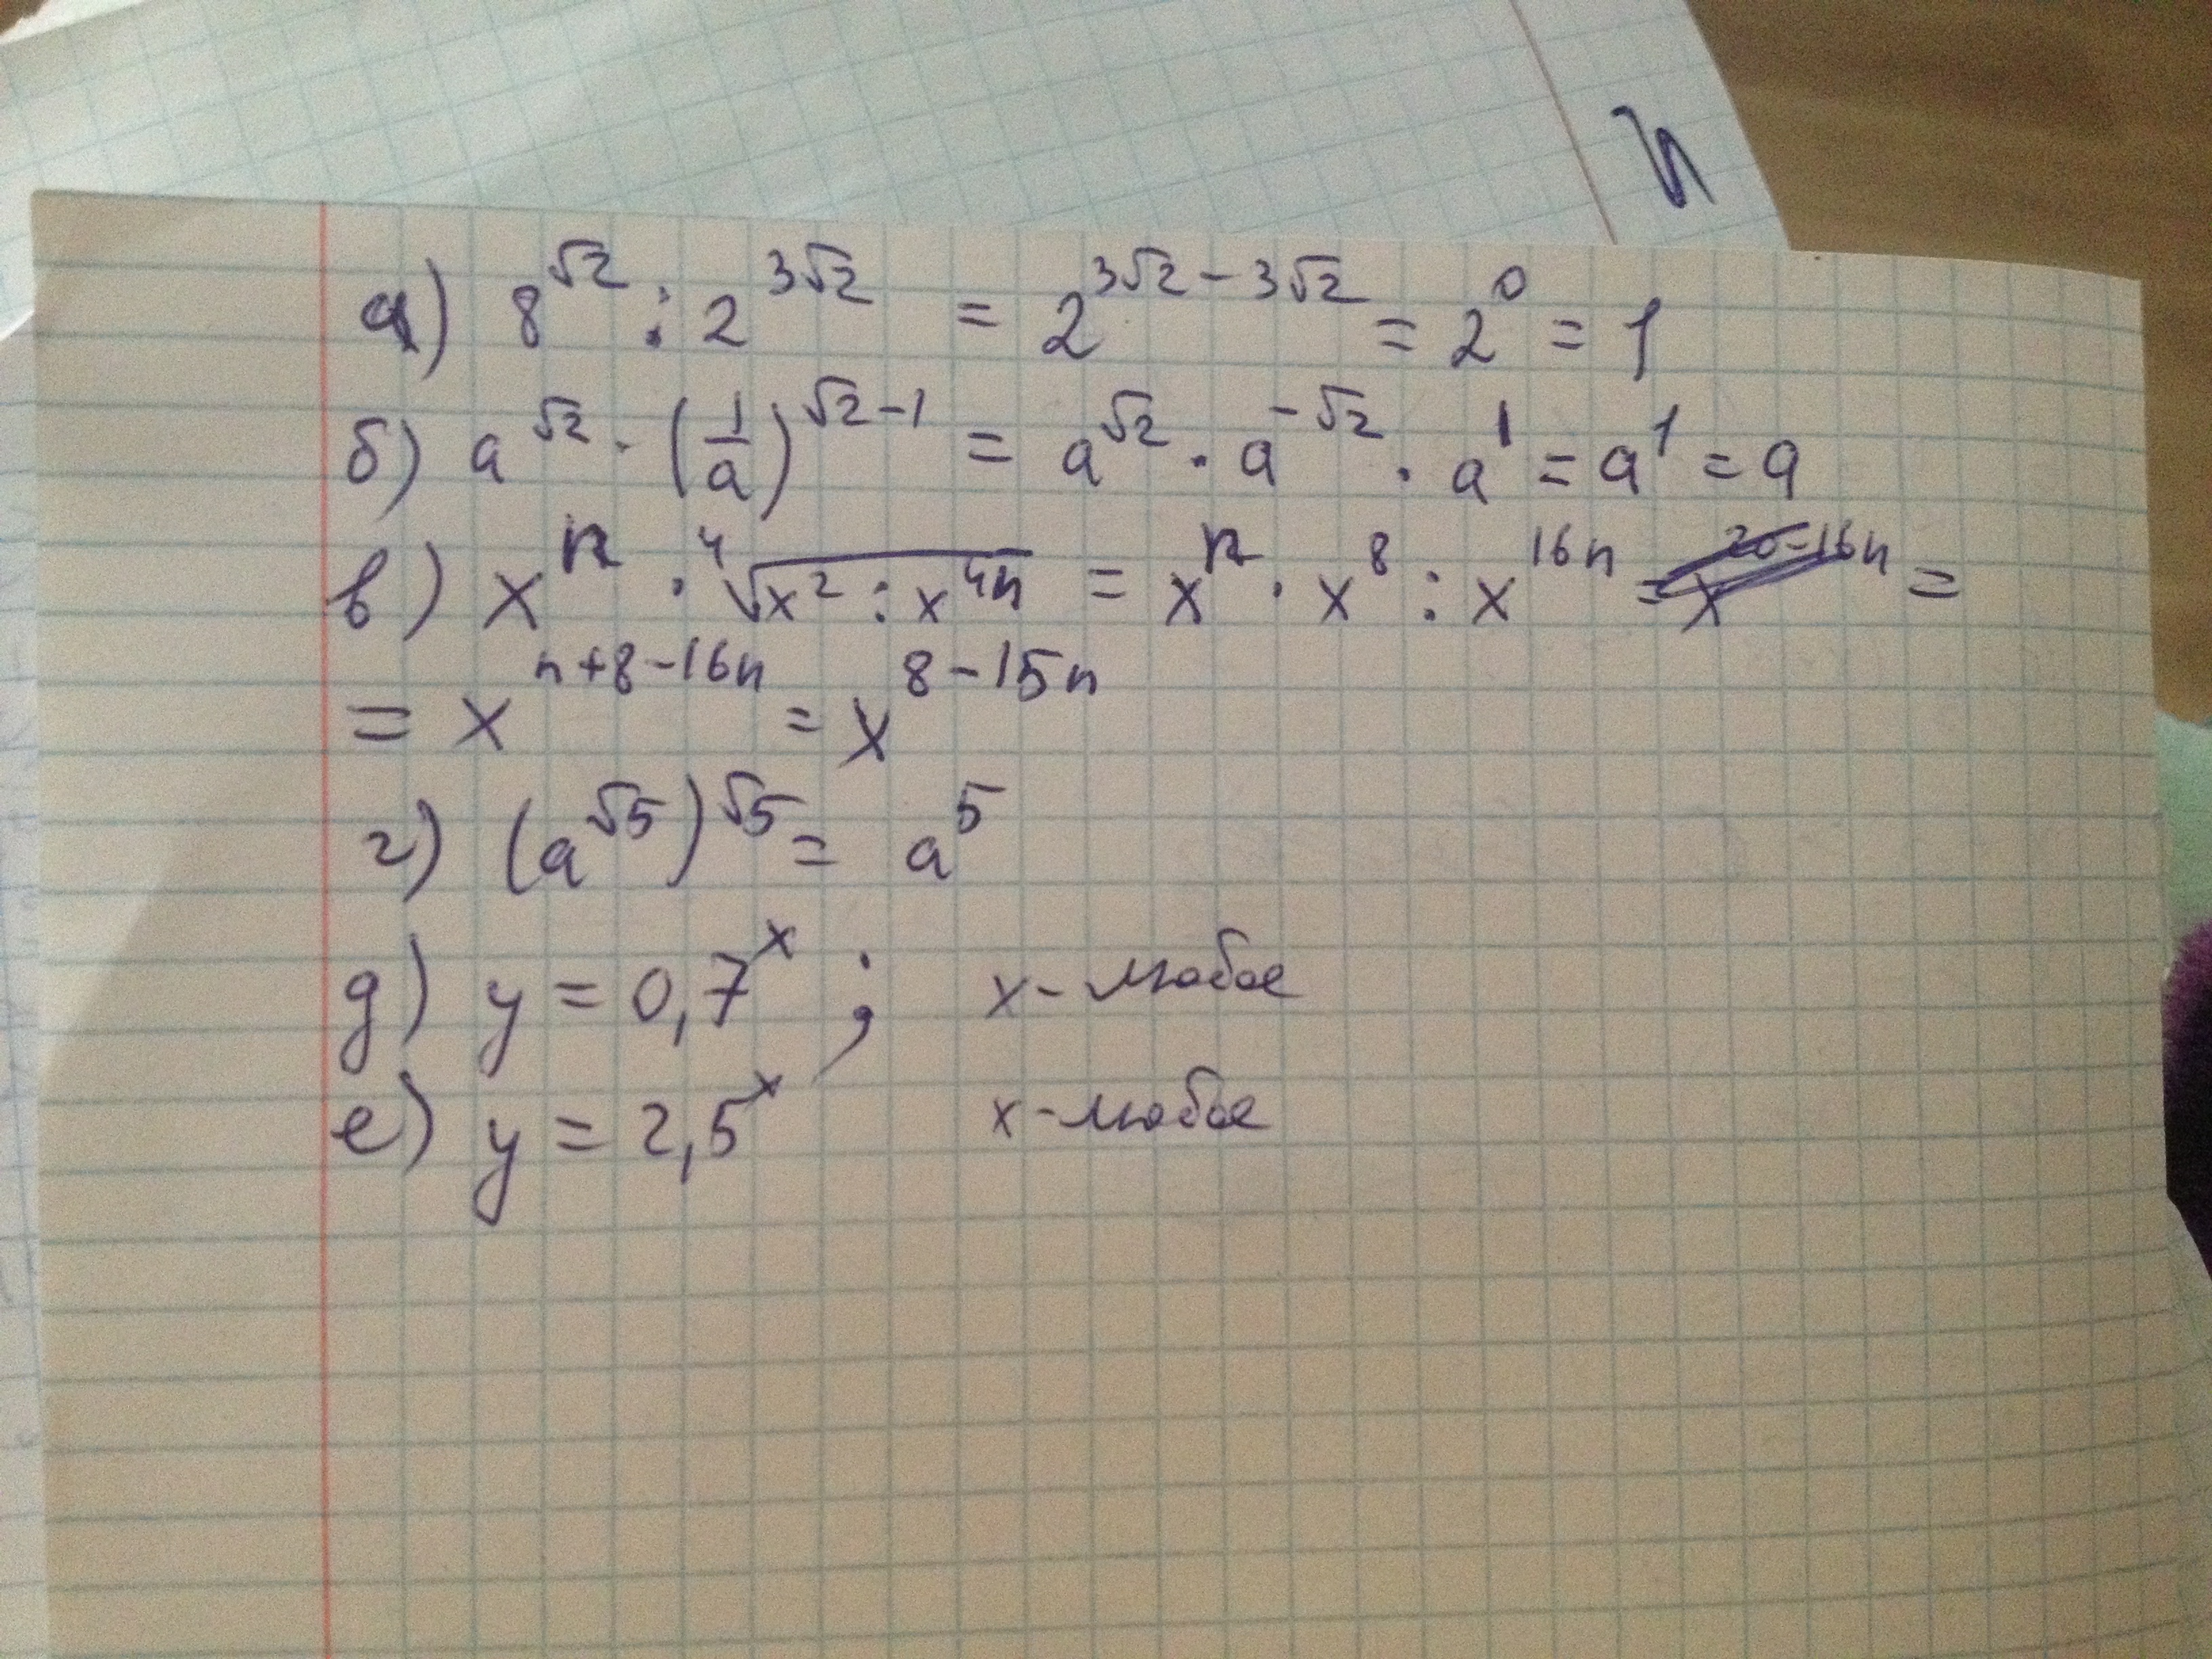 и
а) 8^√2 : 2^3√2 = 2^3√2-3√2 = 2^0 = 1
б) a^√2 · (1/a)^√2-1 = a^√2 · a^-√2 · a^1 = a^1 = a
в) x^n · ⁴√x^2 : x^4n = x^n · x^8 : x^16n = x^20-16n =
= x^n+8-16n = x^8-15n
г) (a^√5)^√5 = a^5
д) y = 0,7^x ; x - любое
е) y = 2,5^x x - любое